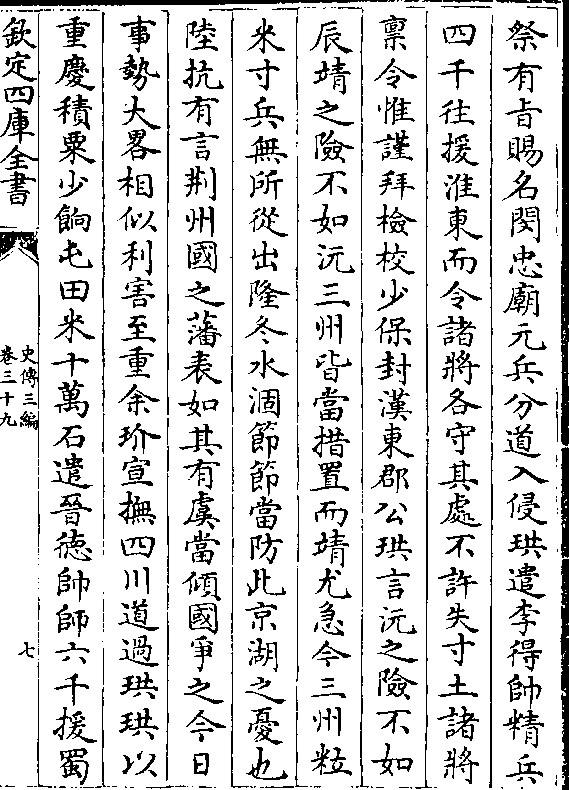 祭有㫖賜名閔忠廟元兵分道入侵珙遣李得帥精兵
四千往援淮東而令諸將各守其處不許失寸土諸將
禀令惟謹拜檢校少保封漢東郡公珙言沅之險不如
辰靖之險不如沅三州皆當措置而靖尤急今三州粒
米寸兵無所從出隆冬水涸節節當防此京湖之憂也
陸抗有言荆州國之藩表如其有虞當傾國爭之今日
事勢大畧相似利害至重余玠宣撫四川道過珙珙以
重慶積粟少餉屯田米十萬石遣晉徳帥師六千援蜀
欽定四庫全書
史傳三編
卷三十九
七